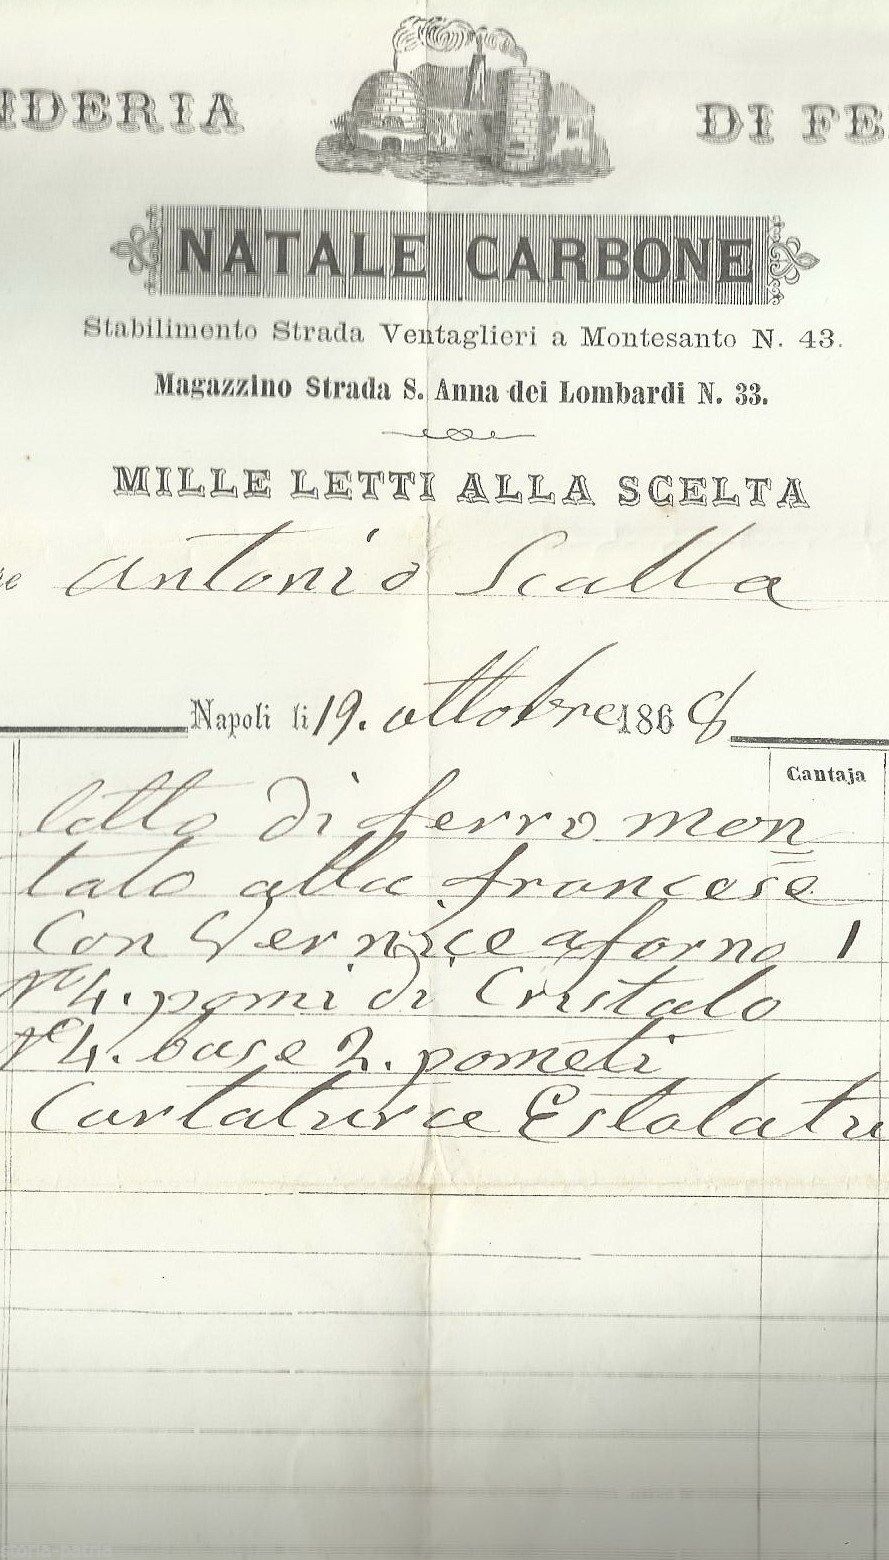 IDERIA DI FE
NATALE CARBONE
Stabilimento Strada Ventaglieri a Montesanto N. 43.
Magazzino Strada S. Anna dei Lombardi N. 33.
MILLE LETTI ALLA SCELTA
re Antonio Scalla
Napoli li 19. ottobre 1868
Cantaja
letto di ferro mon
tato alla francese
Con Vernice a forno 1
N° 4. pomi di Cristalo
N° 4. base 2. pometi